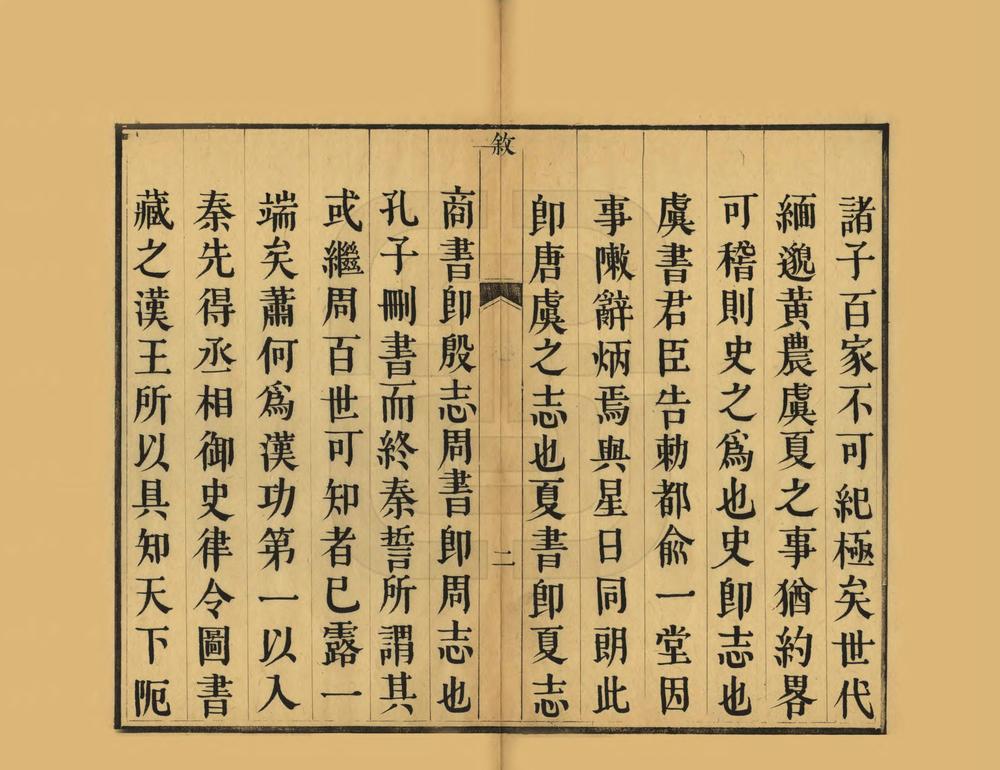 諸子百家不可紀極矣世代
緬邈黃農虞夏之事猶約畧
可稽則史之爲也史卽志也
虞書君臣告勅都兪一堂因
事敶辭炳焉與星日同朗此
卽唐虞之志也夏書卽夏志
敘
二
商書卽殷志周書卽周志也
孔子刪書而終秦誓所謂其
或繼周百世可知者已露一
端矣蕭何爲漢功第一以入
秦先得丞相御史律令圖書
藏之漢王所以具知天下阨